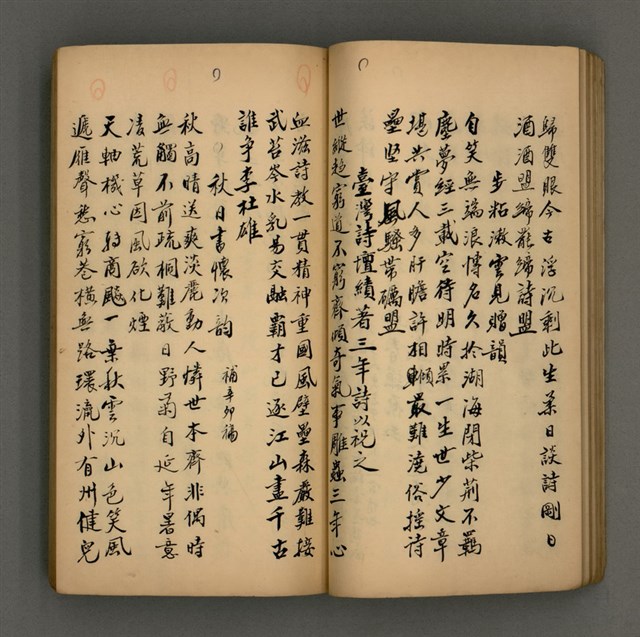 歸雙眼今古浮沉剩此生柔日談詩剛日
酒酒盟締罷締詩盟
步粘漱雲見贈韻
自笑無端浪博名久於湖海閉柴荊不羈
塵夢經三載空待明時累一生世少文章
堪共賞人多肝膽許相傾最難澆俗搖詩
壘堅守風騷帶礪盟
臺灣詩壇續著三年詩以祝之
世縱趨窮道不窮齊傾奇氣事雕蟲三年心
血滋詩教一貫精神重國風壁壘森嚴難接
武苔岑水乳易交融霸才已逐江山盡千古
誰爭李杜雄
秋日書懷次韵 補辛卯稿
秋高晴送爽淡麗動人憐世本齊非偶時
無觸不前疏桐難蔽日野菊自延年署意
凌荒草因風欲化煙
天軸機心轉商飈一葉秋雲沉山色笑風
遞雁聲愁窮巷橫無路環流外有州健兒